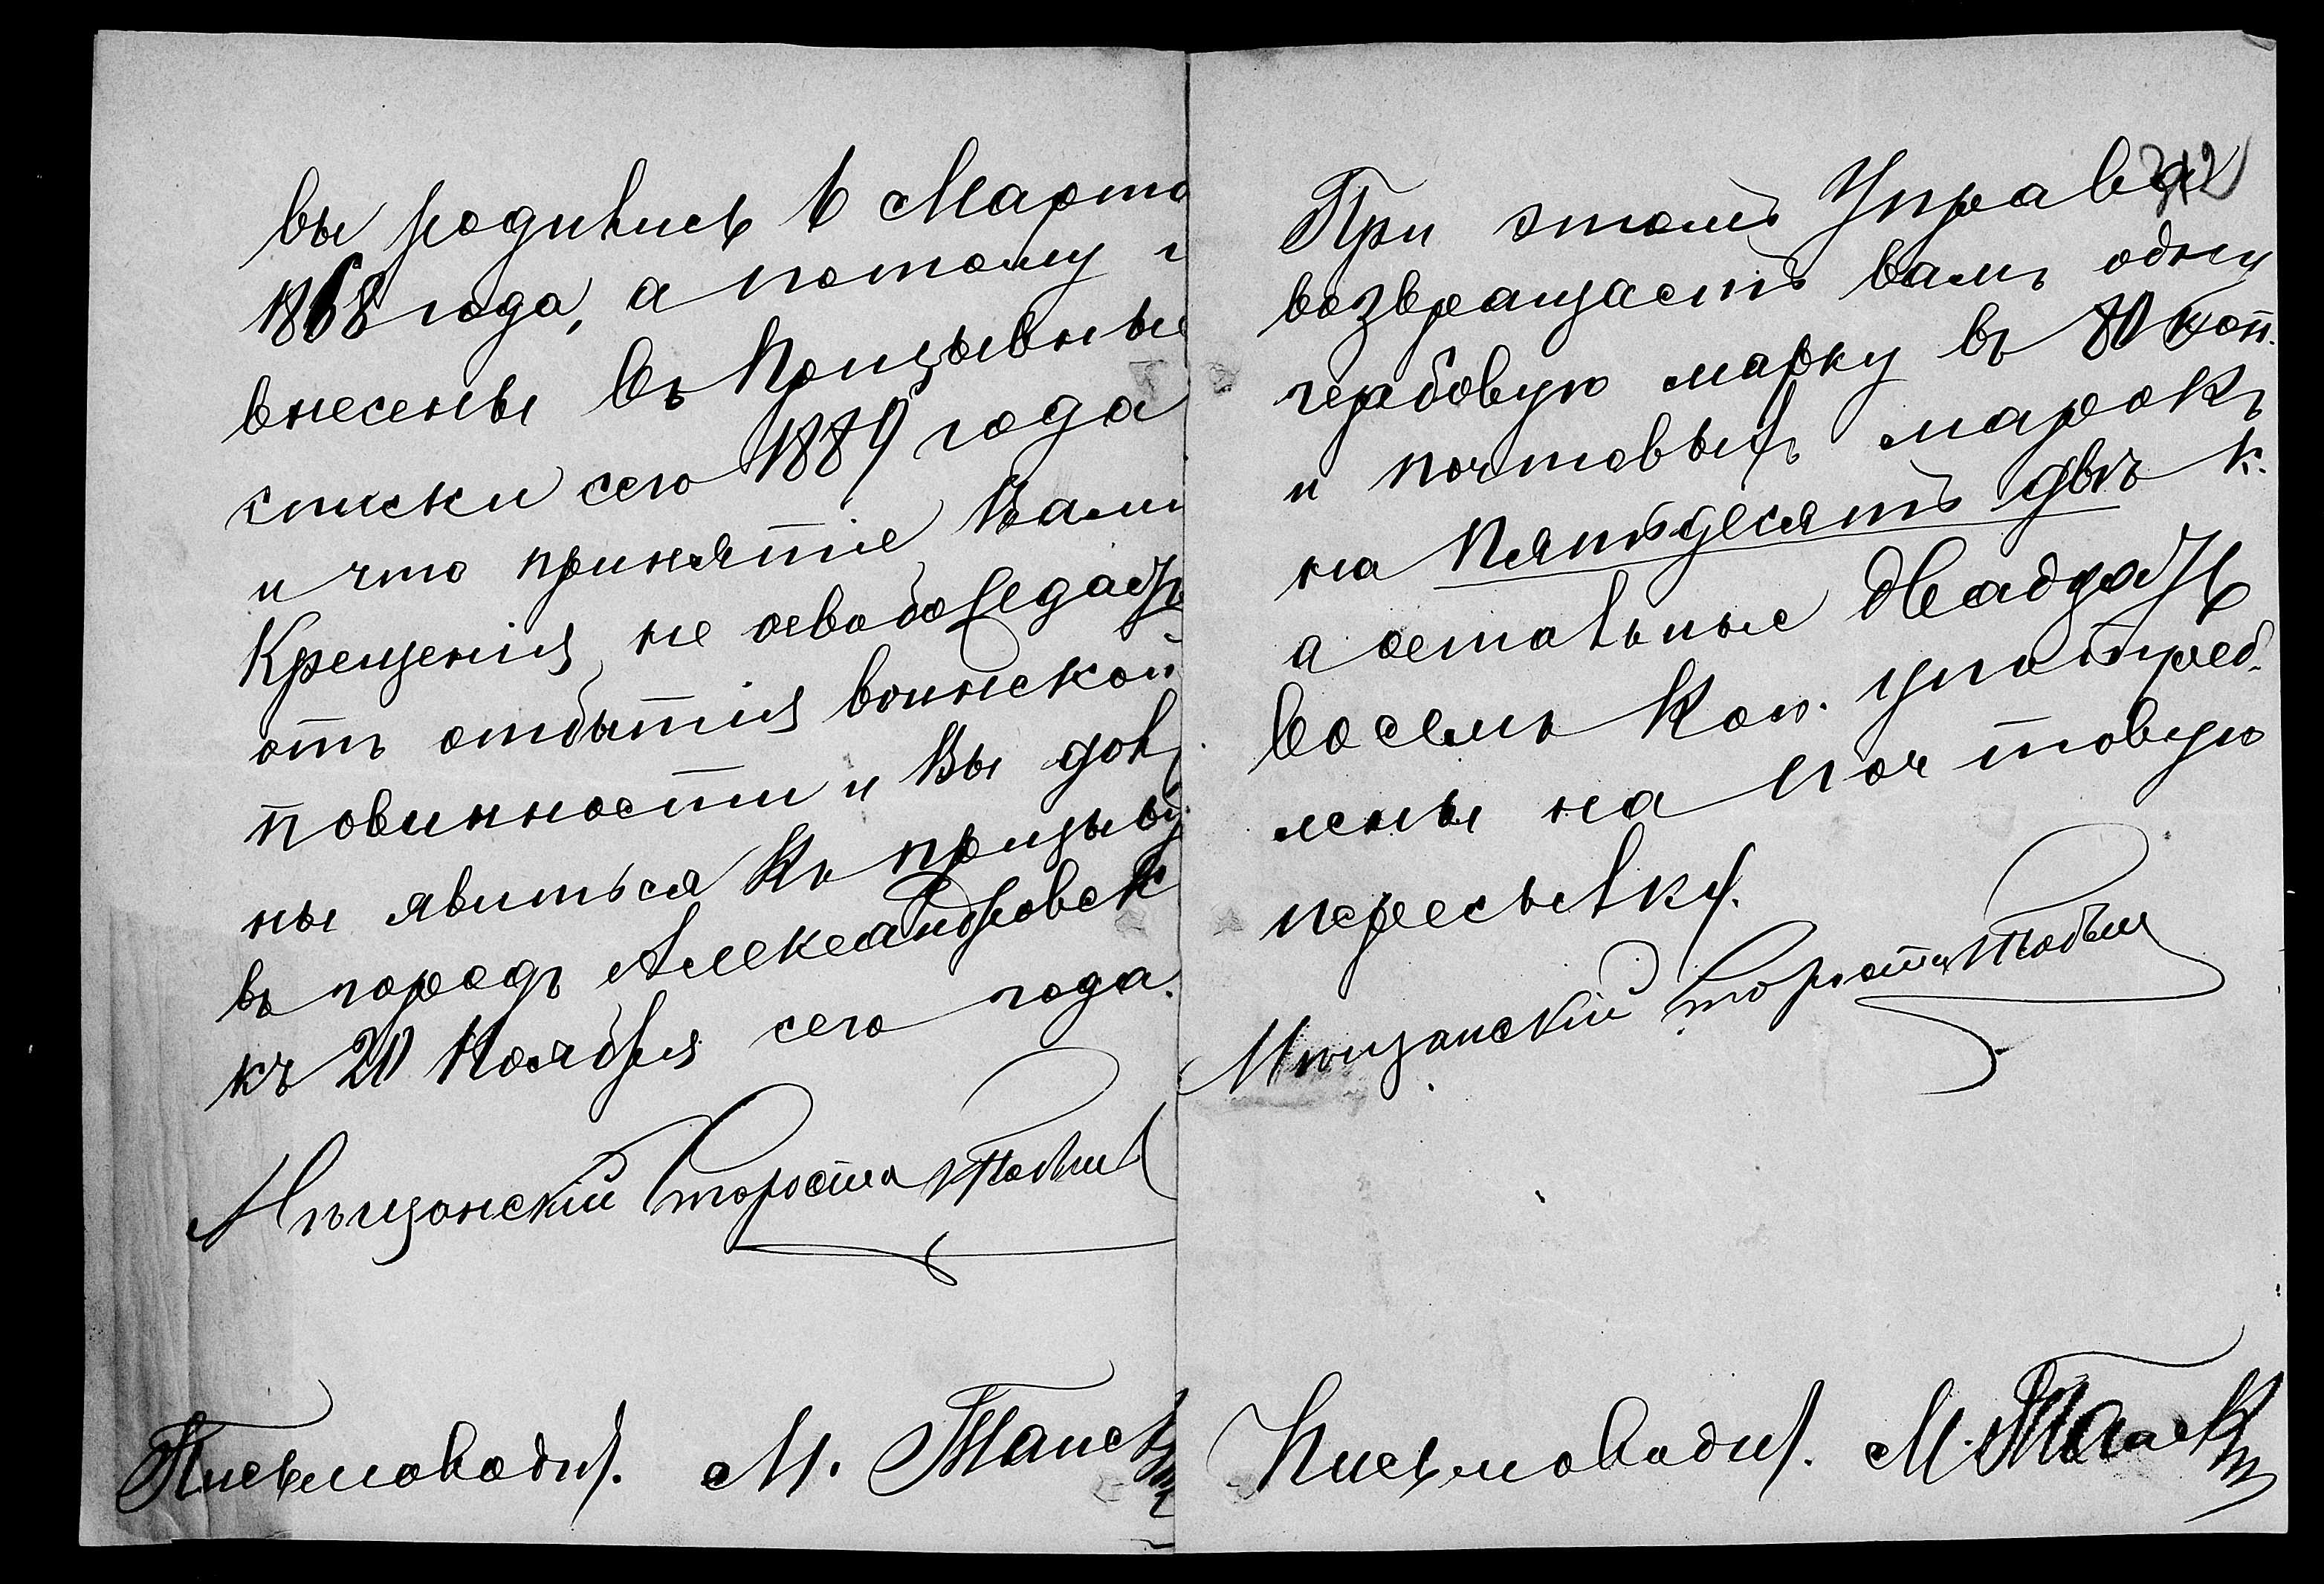 вы родились 6 Марта
1868 года, а потому и
внесены въ Призывные
списки сего 1889 года
и что принятіе Вами
Крещенія, не освобождаетъ
отъ отбытія воинской
повинности и Вы долж
ны явиться къ призыву
въ городъ Александровск
къ 20 Ноября сего года.
Мѣщанскій Староста
Письмоводит.  М.
342
При этомъ Управа
возвращаетъ вамъ одну
гербовую марку въ 80 коп.
и почтовыхъ марокъ
на Пятьдесятъ двѣ к.
а остальные двадцать
восемь Коп. употреб
лены на почтовую
пересылку.
Мѣщанскій Староста
Письмоводит.  М.